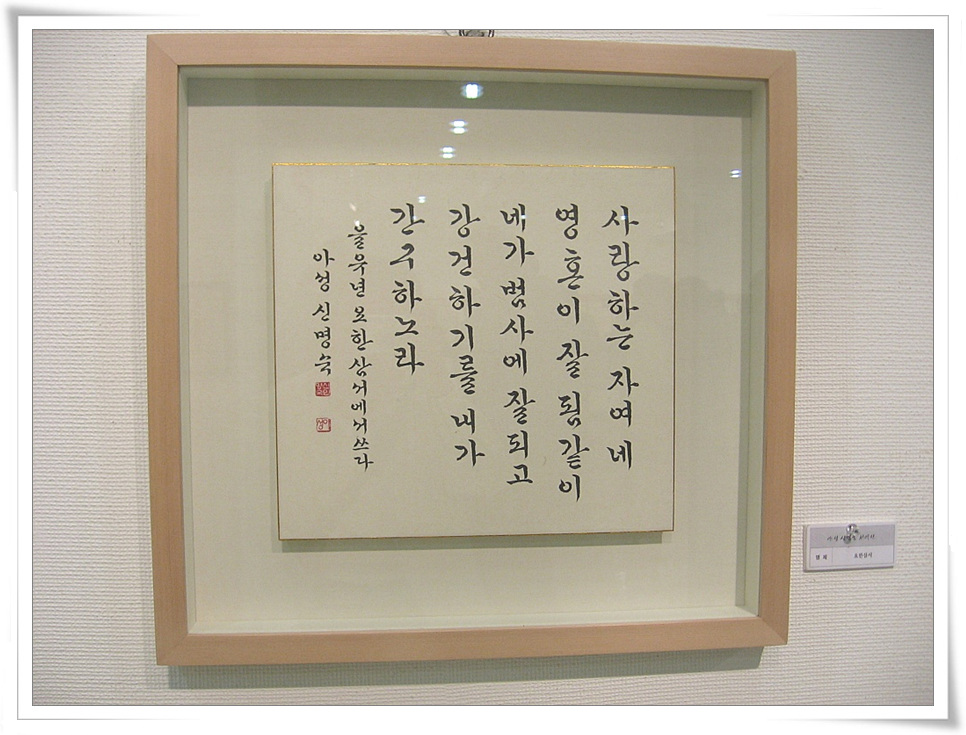 사랑하는 자여 네
영혼이 잘 됨 같이
네가 범사에 잘되고
강건하기를 내가
간구하노라
을유년 요한삼서에서쓰다
아성 신명숙
요한삼서